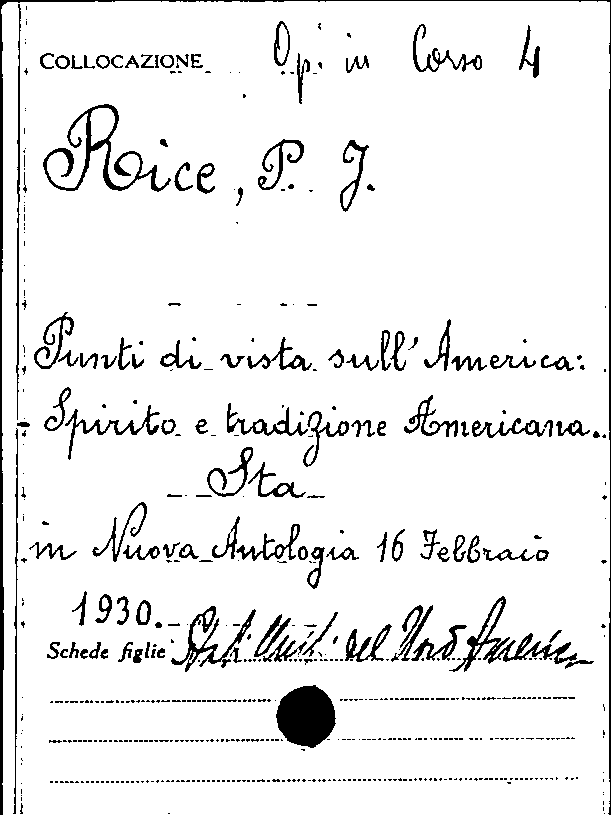 COLLOCAZIONE Op. in Corso 4
Rice, P. J.
Punti di vista sull'America:
Spirito e tradizione Americana.
Sta
in Nuova Antologia 16 Febbraio
1930.
Schede figlie Stati Uniti del Nord America